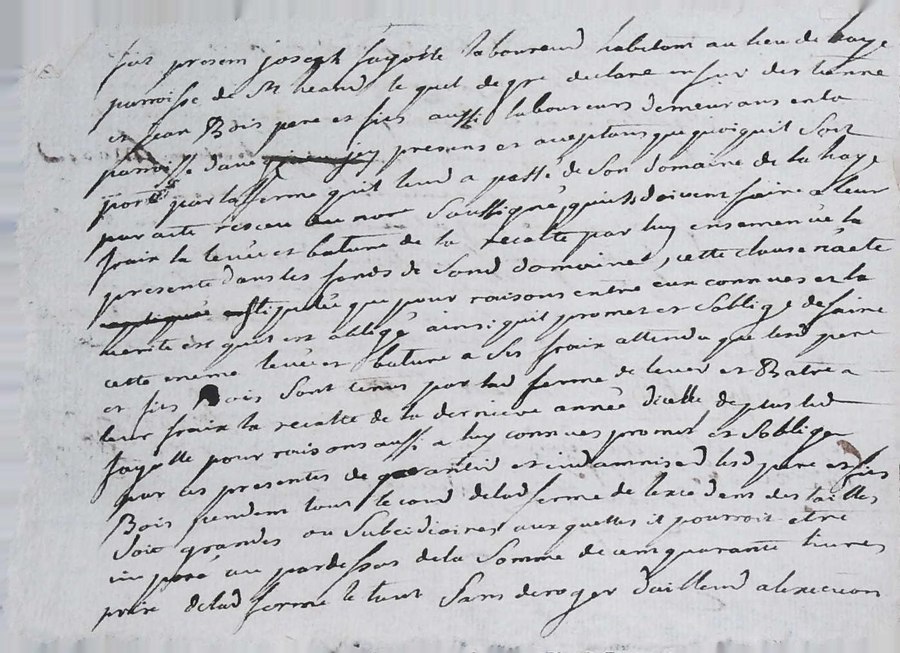 fut present joseph fayolle laboureur habitant au lieu de haye
parroisse de St heand le quel de gre declare en sur des tienne
et jean Bois pere et fils aussi laboureurs demeurans en la
parroisse dans presens et aceptans que quoiquil soit
porté par la ferme quil leur a passé de son domaine de la haye
par acte resceu soussigné, quils doivent faire a leur
fraix la levée et bature de la recolte par luy ensemencée la
presente dans les fonds de sond domaine, cette clause n'a eté
stipulée que pour raisons entre eux connues et la
verité est quil est obligé ainsi quil promet et soblige de faire
cette meme levée et bature a ses fraix attendu que lesd pere
et fils Bois sont tenus par lad ferme de lever et Batre a
leur fraix la recolte de la derniere année dicelle de plus led
fayolle pour raisons aussi a luy connues promet et soblige
par ces presentes de garantir et indamniser lesd pere et fils
Bois pendent tout le cour de lad ferme de lexcedent des tailles
soit grandes ou subcidiaires aux quelles il pourroit etre
imposé au par dessus de la somme de cent quarante livres
prix de lad ferme le tout sans deroger dailleurs a lexecution